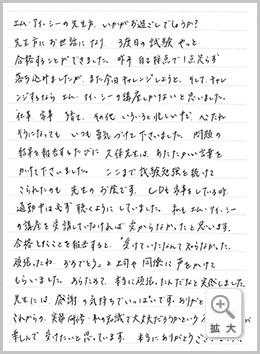 エム・アイ・シーの先生方、いかがお過ごしでしょうか?
先生方にお世話になり、3度目の試験、やっと
合格することができました。昨年 自己採点で1点足らず
落ち込みましたが、また今年チャレンジしようと、そして、チャレ
ンジするなら エム・アイ・シーの講座しかないと思いました。
仕事、家事、育児、その他 いろいろと忙しい中、心だおれ
そうになっても いつも勇気づけて下さいました。問題の
結果を報告するたびに 久保先生は、あたたかい言葉を
かけて下さいました。ここまで試験勉強を続けて
こられたのも 先生のお陰です。CDも家事をしている時、
通勤中は必ず聴くようにしていました。私もエム・アイ・シー
の講座を受講していなければ 受からなかったと思います。
合格したことを報告すると、"受けていたなんて知らなかった。
頑張ったね。おめでとう。"と上司や同僚に声をかけて
もらいました。あらためて、本当に頑張ったんだなあと実感しました。
先生には、感謝の気持ちでいっぱいです。ありがと
これからの、実務研修・私の知識で大丈夫だろうかという
楽しんで受けたいと思っています。本当にありがとうござい
拡大